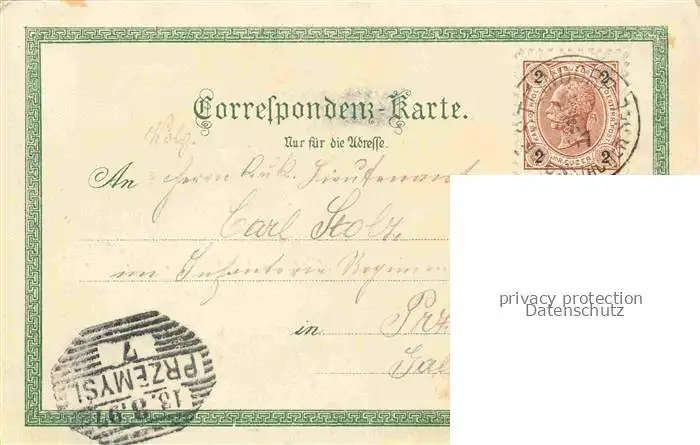 Correspondenz-Karte.
Nur für die Adresse.
An Herrn k.u.k. Lieutenant
Carl Stolz,
im Infanterie Regim
in Prz
Gal
2 2
2 2
PRZEMYSL
7
privacy protection
Datenschutz